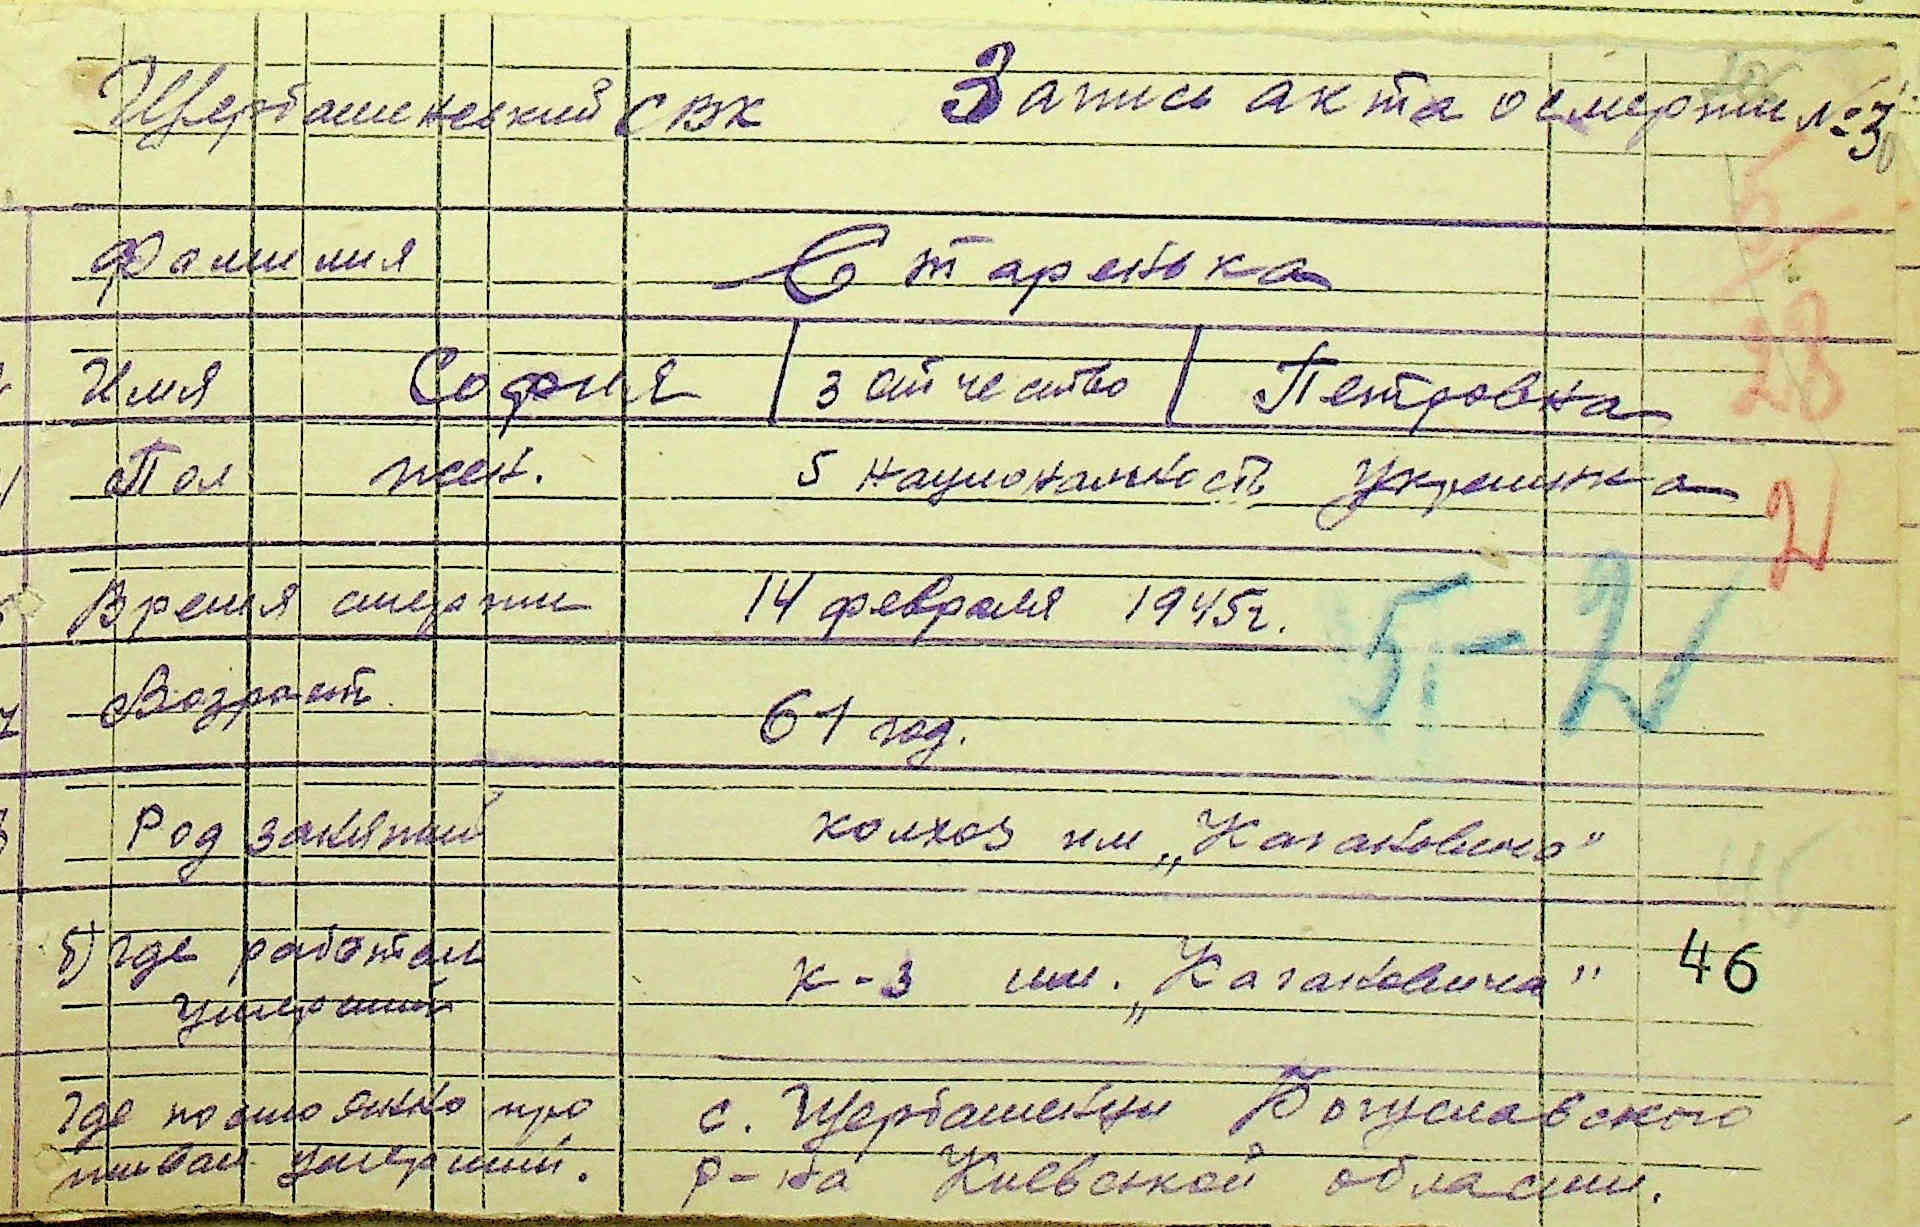 Щербашенский СВК Запись акта о смерти № 3
Фамилия Старенька
Имя София 3 отчество Петровна
Пол жен. 5 национальность Украинка
Время смерти 14 февраля 1945 г.
Возраст 61 год.
5-2
Род занятий колхоз им „Кагановича"
б) где работал к-з им. „Кагановича" 46
умерший
где постоянно про с. Щербашенцы Богуславского
живал умерший. р-на Киевской области.